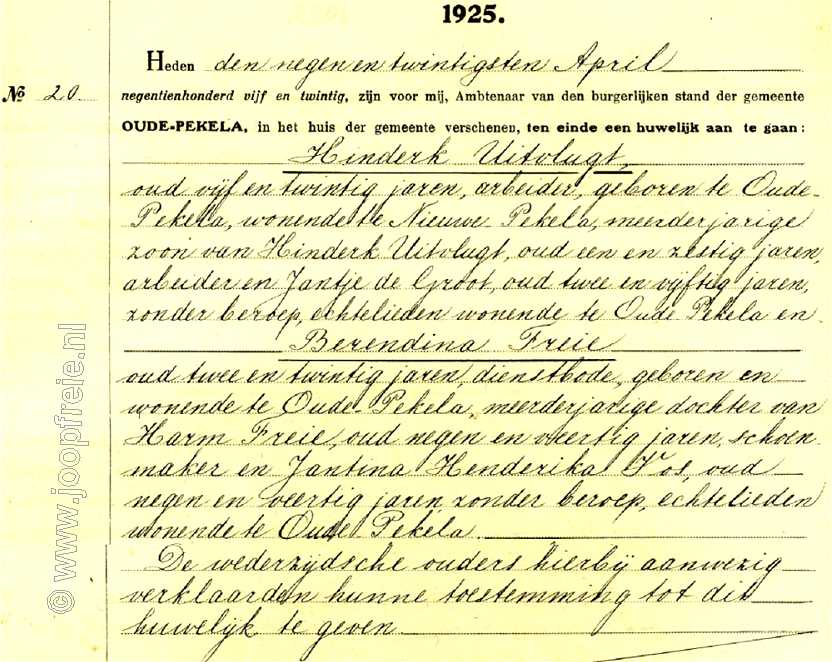 1925.
Heden den negen en twintigsten April
№ 20 negentienhonderd vijf en twintig, zijn voor mij, Ambtenaar van den burgerlijken stand der gemeente
OUDE-PEKELA, in het huis der gemeente verschenen, ten einde een huwelijk aan te gaan:
Hinderk Uitvlugt,
oud vijf en twintig jaren, arbeider, geboren te Oude-
Pekela, wonende te Nieuwe Pekela, meerderjarige
zoon van Hinderk Uitvlugt, oud een en zestig jaren,
arbeider en Jantje de Groot, oud twee en vijftig jaren,
zonder beroep, echtelieden wonende te Oude Pekela en
Berendina Freie
oud twee en twintig jaren, dienstbode, geboren en
wonende te Oude-Pekela, meerderjarige dochter van
Harm Freie, oud negen en veertig jaren, schoen
maker en Jantina Henderika Vos, oud
negen en veertig jaren, zonder beroep, echtelieden
wonende te Oude Pekela
De wederzijdsche ouders hierbij aanwezig
verklaarden hunne toestemming tot dit
huwelijk te geven
© www.joopfreie.nl